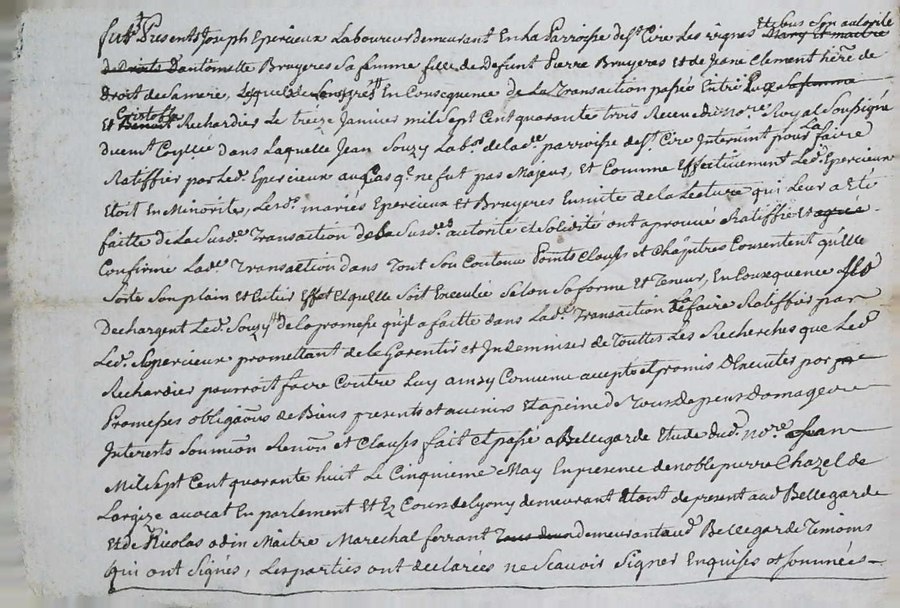 furt Presents Joseph Epercieux Laboureur demeurant En La Parroisse de St Cire Les vignes Et sous son autorité
Mary Et maitre
de droits d'antoinette Bruyeres Sa femme fille de Defunt Pierre Bruyeres et de Jeane Clement hérre de
Droit de Sa mere, Lesquels de Leur gres En Consequence de La Transaction passée Entre Eux
Et Cristofle Rechardier Le treize Janvier mil Sept Cent quarante trois Receue du nore Royal Soussigné
duemt Collée dans Laquelle Jean Souzy Labr de lade parroisse de St Cire Intervint pour La faire
Ratiffier par Led. Epercieux au Cas qe ne fut pas Majeur, Et Comme Effectivement Led. Epercieux
Etoit En Minorité, Lesds. mariés Epercieux et Bruyeres Ensuite de La Lecture qui Leur a Eté
faitte de La Susde Transaction de La Susde autorité et Solidité ont aprouvé Ratiffié et agréé
Confirmé Lade Transaction dans Tout Son Contenu Points Clauses et Chapitres Consentent qu'Elle
Sorte Son plain et Entier Effet Et qu'Elle Soit Executée Selon Sa forme Et Teneur, En Consequence
Dechargent Led. Souzy de La promesse qu'il a faitte dans Lade Transaction de La faire Ratiffier par
Led. Sr Epercieux promettant de le Garentir et Indemniser de Touttes Les Recherches que Led
Rechardier pourroit faire Contre Luy ainsy Convenu accepté et promis D'Executer por
Promesses obligaons de Biens presents et avenirs Et a peine de Tous Depens Domage
Interets Soumion Renon et Clauses fait Et passé a Bellegarde Etude dud. nore
Mil Sept Cent quarante huit Le Cinquieme May En presence de noble pierre Chazel de
Largize avocat En parlement Et Ez Cours de Lyon y demeurant Etant de present aud Bellegarde
Et de Nicolas odin Maitre Marechal ferrant demeurant aud Bellegarde Temoins
Qui ont Signes, Les parties ont declarées ne Scavoir Signer Enquises et Sommées